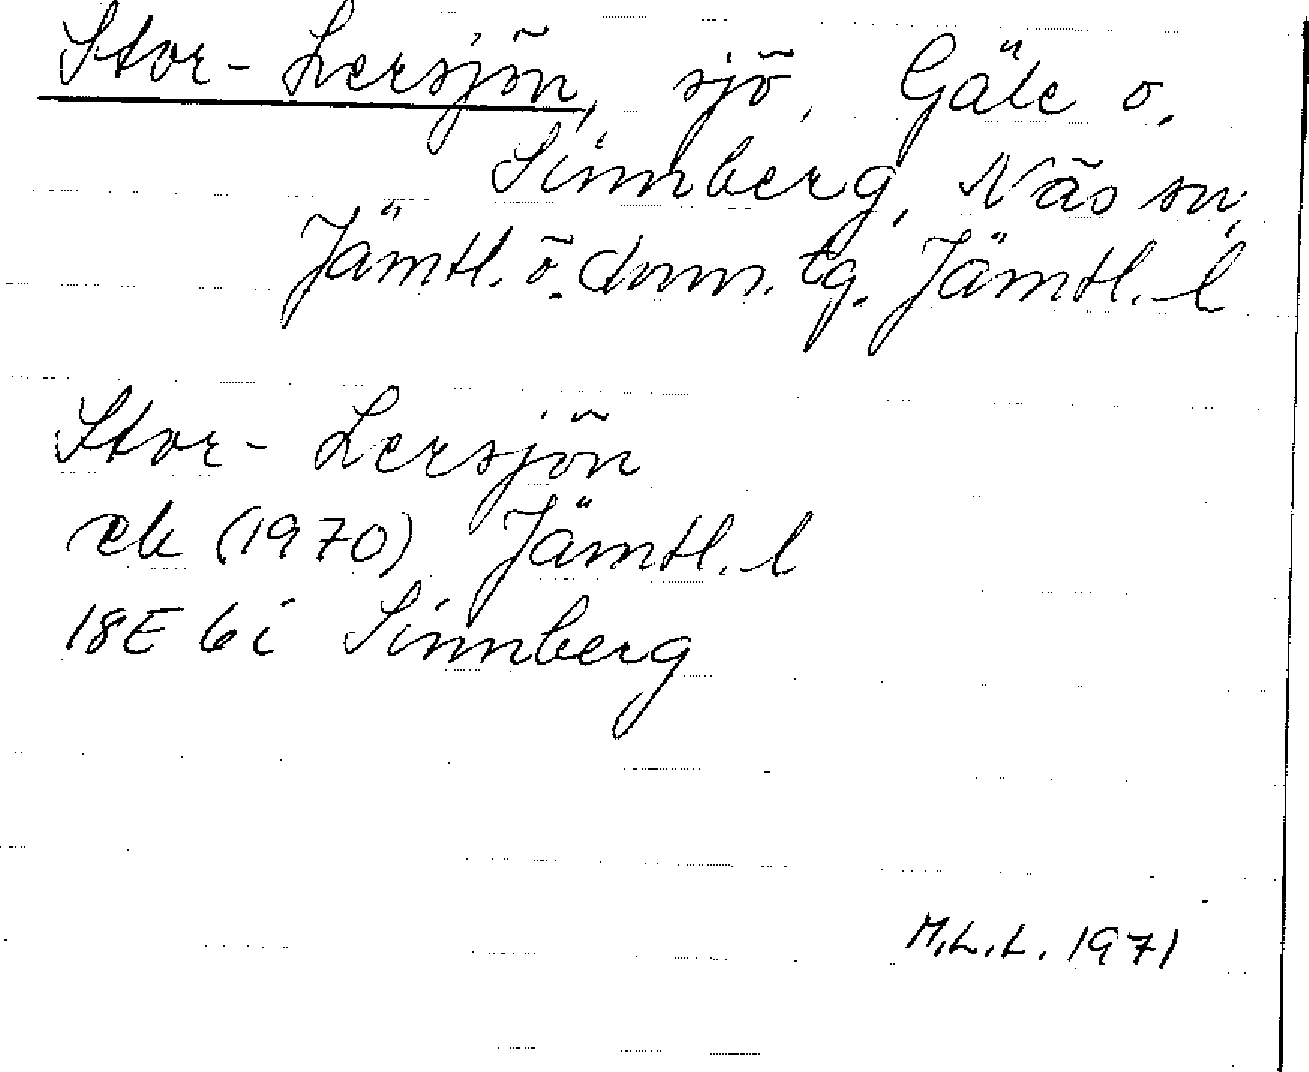 Stor-Lersjön, sjö, Gäle o.
Sinnberg, Näs sn,
Jämtl. ö. doms. tg. Jämtl. l
Stor-Lersjön
ek (1970) Jämtl. l
18E 6i Sinnberg
M.L.L. 1971